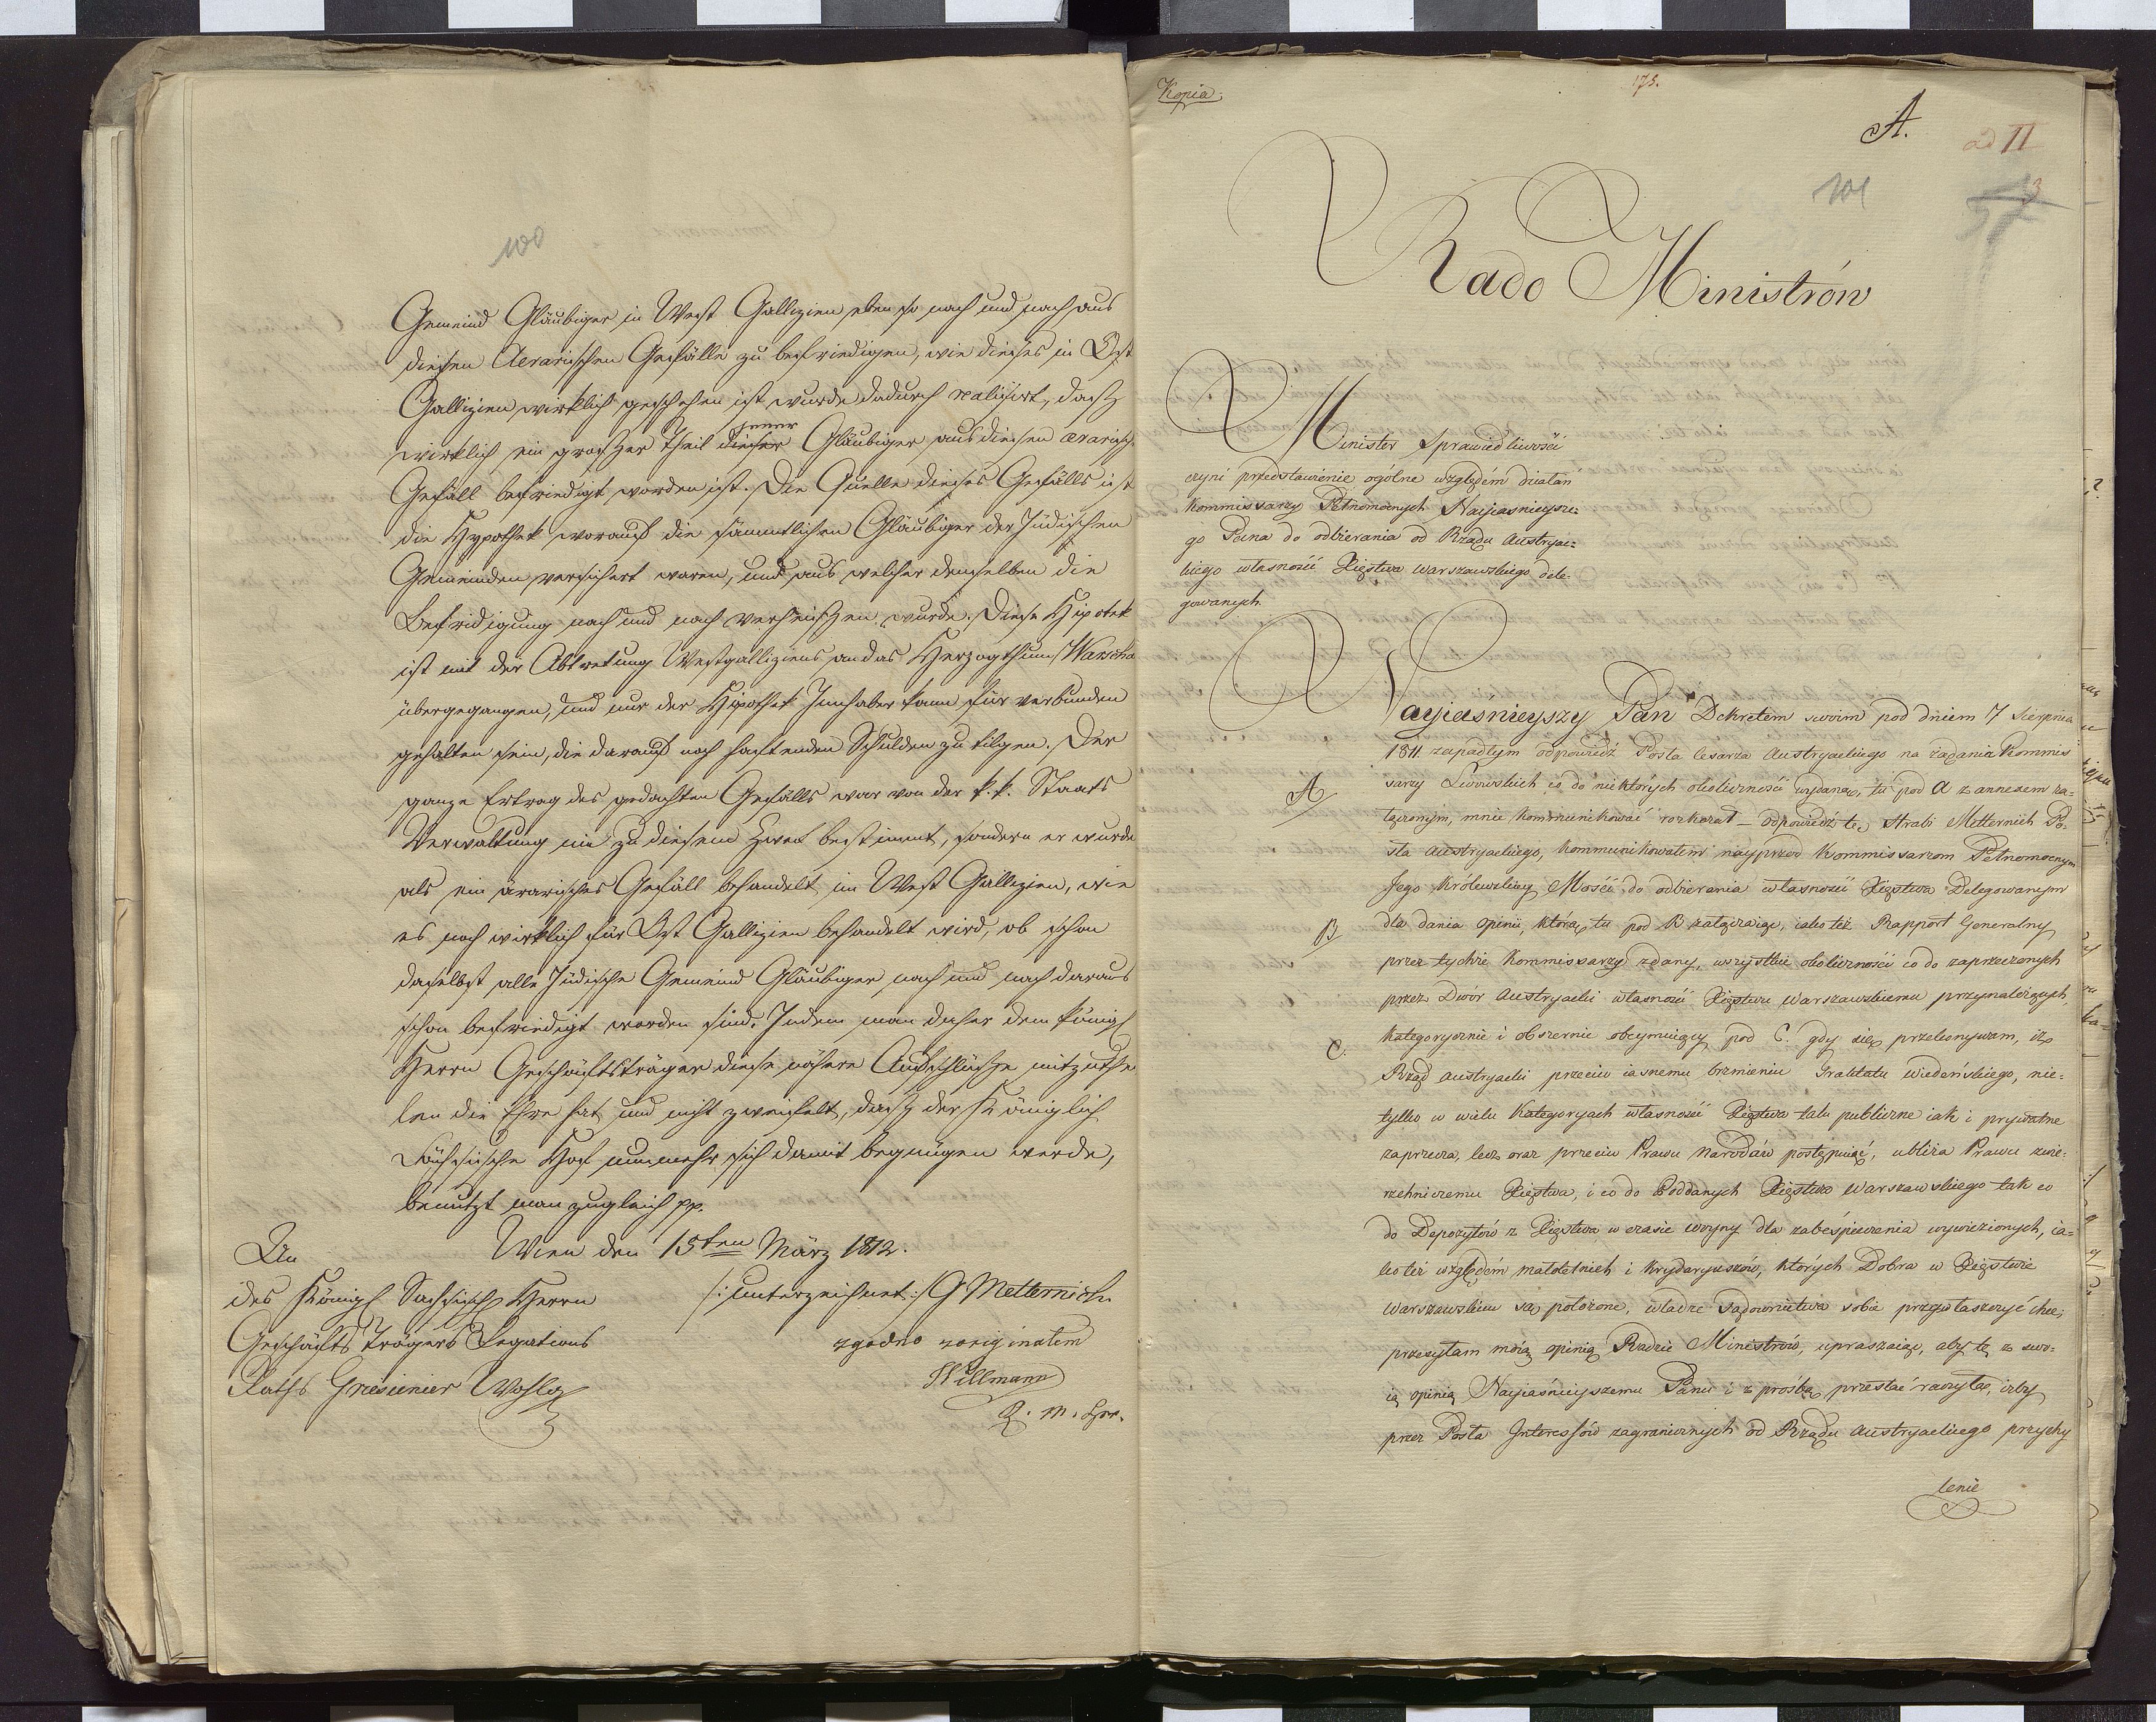 100
Gemeind Gläubiger in West Gallizien eben so nach und nach aus
diesen Aerarischen Gefälle zu befriedigen, wie dieses in Ost
Gallizien wirklich geschehen ist wurde dadurch realisirt, dass
wirklich ein grosser Theil dieser jener Gläubiger aus diesen aerarisch
Gefäll befriedigt worden ist. Die Quelle dieses Gefälls ist
die Hypothek worauf die sämmtlichen Gläubiger der Jüdischen
Gemeinden versichert waren, und aus welcher denselben die
Befridigung nach und nach verheissen wurde. Diese Hipotek
ist mit der Abtretung Westgalliziens an das Herzogthum Warscha
übergegangen, und nur der Hipothek Innhaber kann für verbunden
gehalten sein, die darauf noch haftenden Schulden zu tilgen. Der
ganze Ertrag des gedachten Gefälls war von der k. k. Staats
Verwaltung nie zu diesem Zweck bestimmt, sondern er wurde
als ein ärarisches Gefäll behandelt im West Gallizien, wie
es noch wirklich für Ost Gallizien behandelt wird, ob schon
daselbst alle Jüdische Gemeind Gläubiger nach und nach daraus
schon befriedigt worden sind. Indem man daher dem königl
Herrn Geschäftsträger diese nähere Aufschlüsse mitzuthe
len die Ehre hat und nicht zweifelt, dass der Königlich
Sächsische Hof nunmehr sich damit begnügen werde,
benutzt man zugleich pp.
Wien den 15ten März 1812.
An
des Königl Sachsisch Herrn
/: unterzeichnet :/ G Metternich
Geschäfts Trägers Legations
zgodno z originałem
Raths Griesinier Wohlg
Willmann
Z. M. Spr.
Kopia.
175.
A.
ad II
101
3
Rado Ministrów
Minister Sprawiedliwości
czyni przedstawienie ogólne względem działań
Kommissarzy Pełnomocnych Nayiasnieysze=
go Pana do odbierania od Rządu Austryac=
kiego własności Xięstwa Warszawskiego dele=
gowanych.
Nayiaśnieyszy Pan Dekretem swoim pod dniem 7 Sierpnia
1811 zapadłym odpowiedź Posła Cesarza Austryackiego na żądania Kommis
A/
sarzy Lwowskich co do niektórych okoliczności wydaną, tu pod A z annexem za=
łączonym, mnie kommunikować rozkazał – odpowiedź tę Hrabi Metternich Po=
sła Austryackiego, kommunikowałem nayprzód Kommissarzom Pełnomocnym
Jego Królewskiey Mości do odbierania własności Xięstwa Delegowanym
B/
dla dania opinii, którą tu pod B załączaiąc, iako też Rapport Generalny
przez tychże Kommissarzy zdany, wszystkie okoliczności co do zaprzeczonych
przez Dwór Austryacki własności Xięstwu Warszawskiemu przynależących
C.
kategorycznie i obszernie obeymuiący pod C. gdy się przekonywam, iż
Rząd Austryacki przeciw iasnemu brzmieniu Traktatu Wiedeńskiego, nie=
tylko w wielu Kategoryach własności Xięstwa tak publiczne iak i prywatne
zaprzecza, lecz oraz przeciw Prawu Narodów postępuiąc, ubliża Prawu zwie=
rzchniczemu Xięstwa, i co do Poddanych Xięstwa Warszawskiego tak co
do Depozytów z Xięstwa w czasie woyny dla zabeśpieczenia wywiezionych, ia=
ko też względem małoletnich i krydaryuszów, których Dobra w Xięstwie
Warszawskim są położone, władze Sądownictwa sobie przywłaszczyć chce;
przesyłam moią opinią Radzie Ministrów, upraszaiąc, aby tę z swo=
ią opinią Nayiaśnieyszemu Panu i z prośbą przesłać raczyła, iżby
przez Posła Interessów zagranicznych od Rządu Austryackiego przychy
lenie